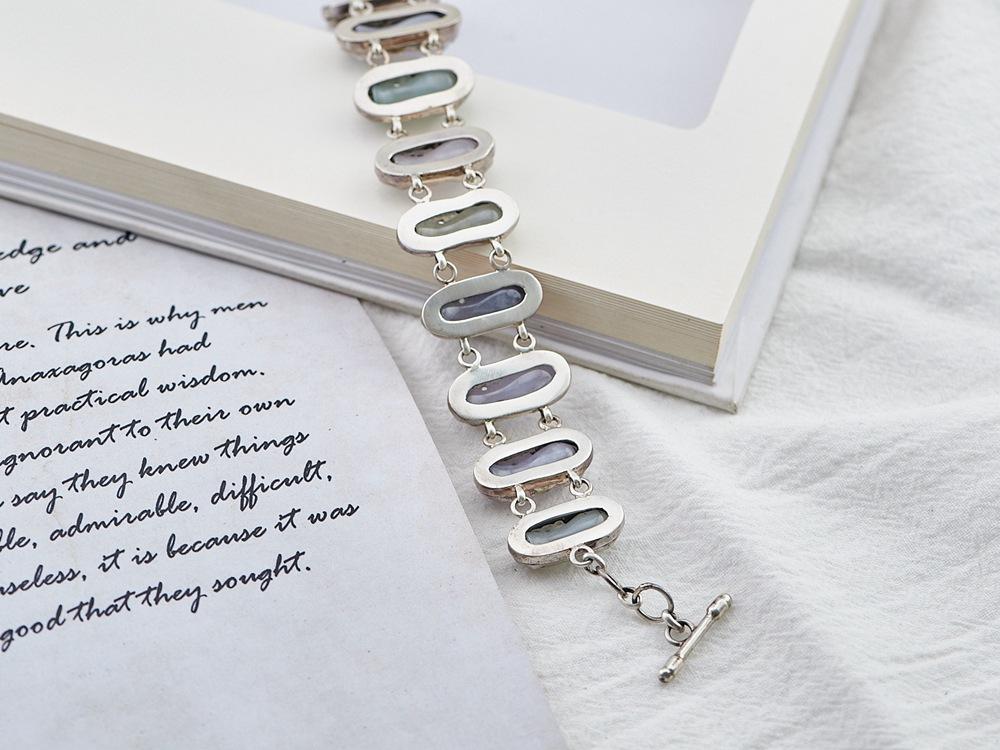 edge and
ve
re. This is why men
Anaxagoras had
t practical wisdom.
gnorant to their own
say they knew things
ble, admirable, difficult,
useless, it is because it was
good that they sought.